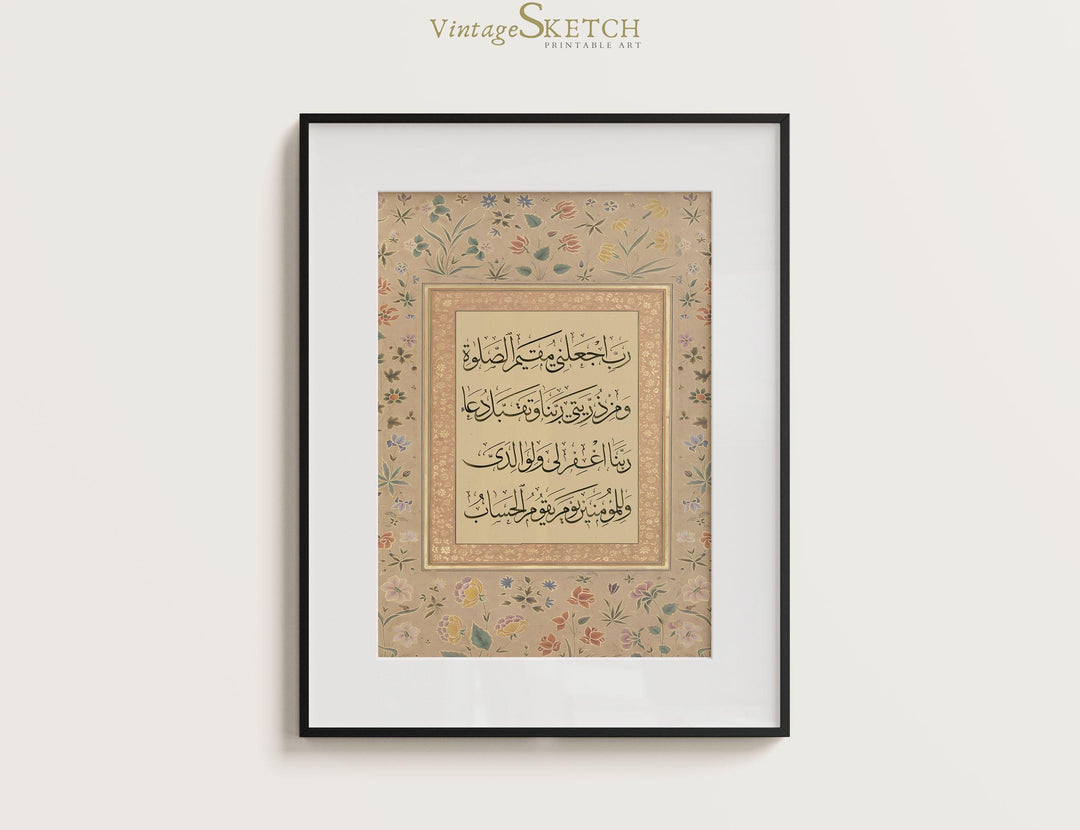 VintageSKETCH
PRINTABLE ART
رَبِّ اجْعَلْنِي مُقِيمَ الصَّلٰوةِ
وَمِنْ ذُرِّيَّتِي رَبَّنَا وَتَقَبَّلْ دُعَاءِ
رَبَّنَا اغْفِرْ لِي وَلِوَالِدَيَّ
وَلِلْمُؤْمِنِينَ يَوْمَ يَقُومُ الْحِسَابُ